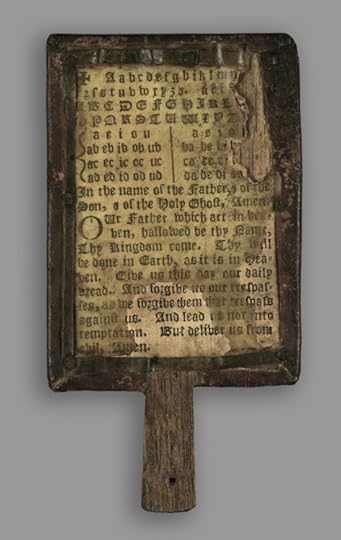 ✠ Aabcdefghiklmn
rſstubwxyzꝛ. aei
ABCDEFGHIKL
OPQRSTUWXYZ
a e i o u a e i o
ab eb ib ob ub ba be bi
ac ec ic oc uc ca ce ci
ad ed id od ud da de di
In the name of the Father, & of the
Son, & of the Holy Ghoſt, Amen.
OUr Father which art in hea-
ben, hallowed be thy Name,
Thy Kingdom come. Thy will
be done in Earth, as it is in Hea-
ben. Give us this day our daily
bread. And forgive us our treſpaſ-
ſes, as we forgive them that treſpaſs
againſt us. And lead us not into
temptation. But deliver us from
ebil, Amen.